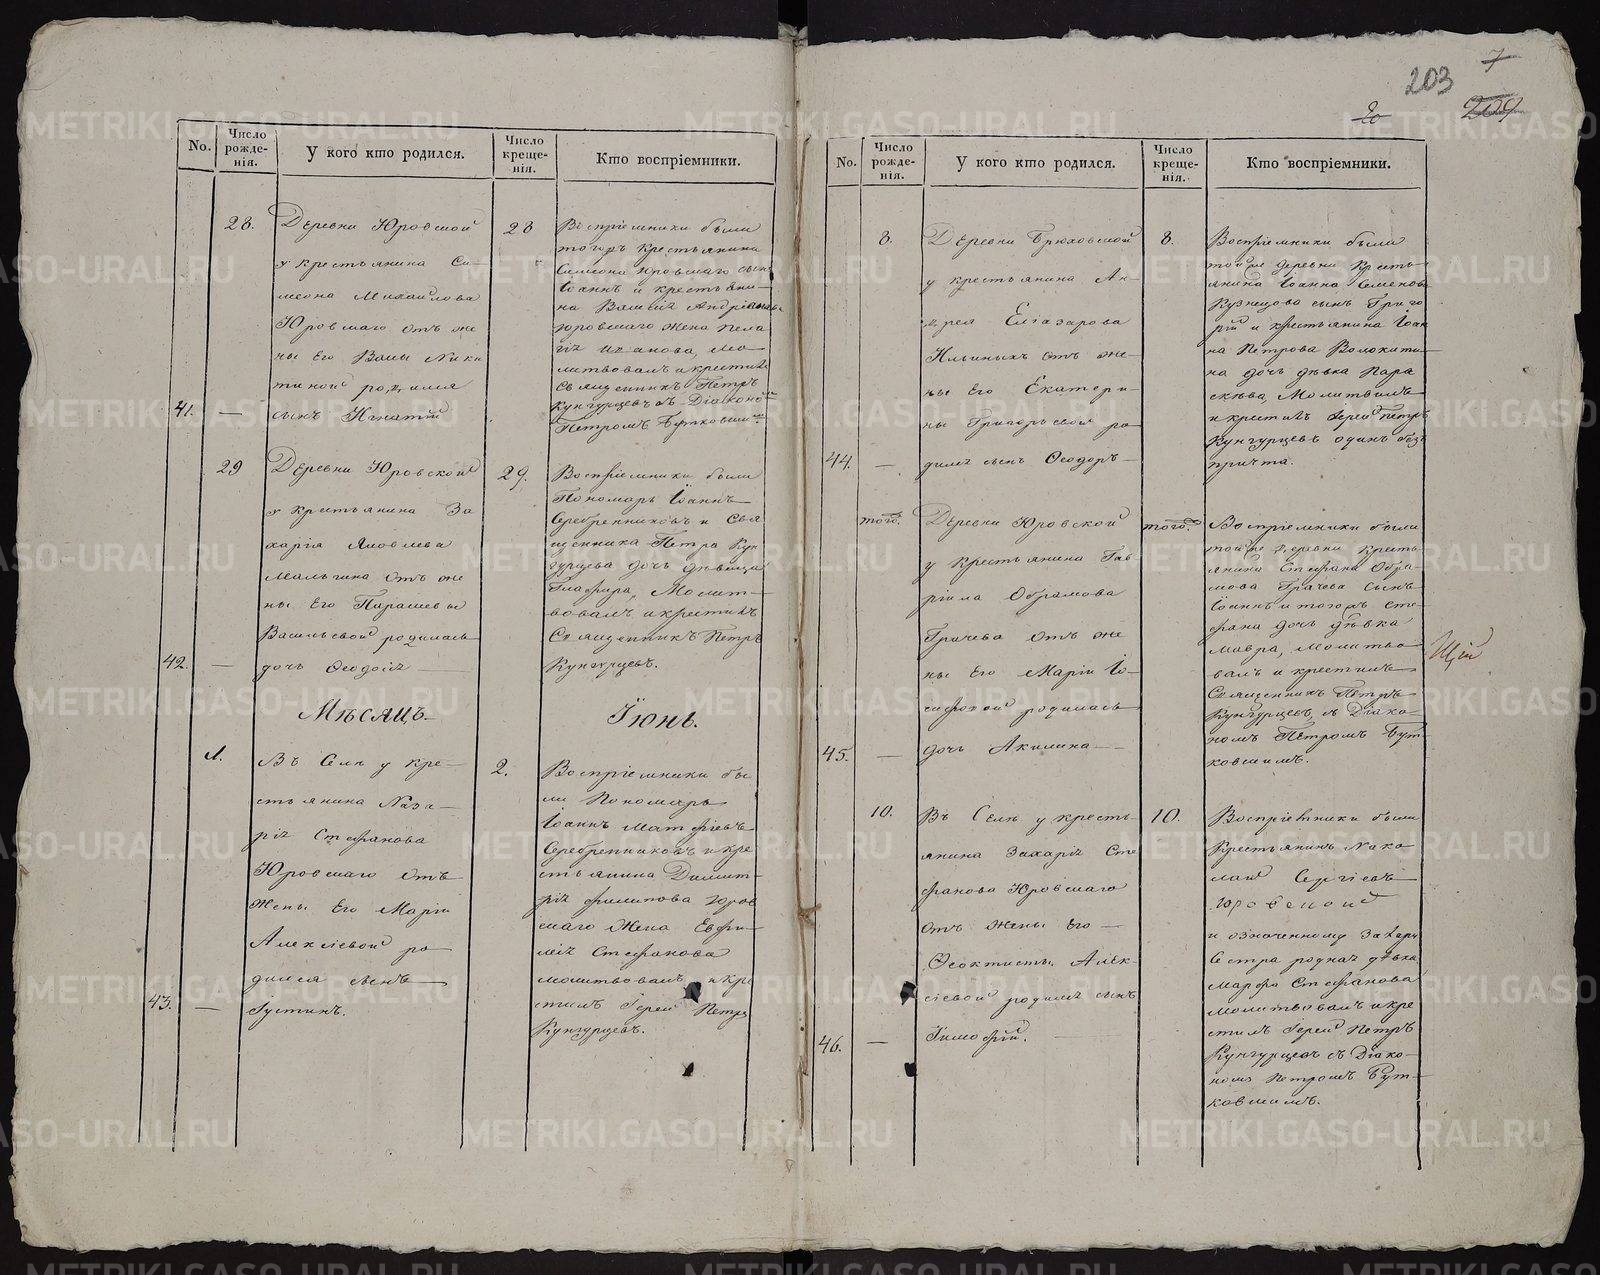 203
7
No.
Число рожде-нія.
У кого кто родился.
Число креще-нія.
Кто воспріемники.
28.
Деревни Юровской
у крестьянина Си-
меона Михайлова
Юровшаго отъ же
ны его Вассы Ники
тиной родился
41. — сынъ Игнатій
28
Воспріемники были
тогожъ крестьянина
Симеона Юровшаго сынъ
Іоаннъ и крестьяни-
на
Юровшаго жена Пела
гія Иванова, Мо-
литвовалъ и крестилъ
Священникъ Петръ
Кунгурцевъ съ Діакономъ
Петромъ Бутковшимъ
29
Деревни Юровской
у крестьянина За
харія Яковлева
Мальгина отъ же
ны его Парасковьи
Васильевой родилась
42. — дочь Ѳеодосія —
29.
Воспріемники были
Пономарь Іоаннъ
Серебренниковъ и Свя
щенника Петра Кун
гурцева дочь дѣвица
Глафира, Молит-
вовалъ и крестилъ
Священникъ Петръ
Кунгурцевъ.
Мѣсяцъ Іюнь.
1.
Въ Селѣ у кре-
стьянина Наза-
рія Стефанова
Юровшаго отъ
жены его Маріи
Алексіевой ро-
дился сынъ
43. — Іустинъ.
2.
Воспріемники бы
ли Пономарь
Іоаннъ Матфіевъ
Серебренниковъ и кре
стьянина Димит-
рія Филипова Юров
шаго жена Евфи-
мія Стефанова
молитвовалъ и кре
стилъ Іерей Петръ
Кунгурцевъ.
No.
Число рожде-нія.
У кого кто родился.
Число креще-нія.
Кто воспріемники.
8.
Деревни Брюховской
у крестьянина Ан-
дрея Еліазарова
Ильиныхъ отъ же-
ны его Екатери-
ны Григорьевой ро
44. — дился сынъ Ѳеодоръ —
8.
Воспріемники были
тойже деревни Кресть-
янина Іоанна Семенова
Кузнецова сынъ Григо
рій и крестьянина Іоан
на Петрова Волокити-
на дочь дѣвка Пара
скѣва, Молитвилъ
и крестилъ Іерей Петръ
Кунгурцевъ одинъ безъ
причта.
тогоже.
Деревни Юровской
у Крестьянина Гав
ріила Обрамова
Грачева отъ же
ны его Маріи Іо-
сифовой родилась
45. — дочь Акилина —
тогоже.
Воспріемники были
тойже деревни Кресть
янина Стефана Обра-
мова Грачева сынъ
Іоаннъ и тогожъ Сте
фана дочь дѣвка
Мавра, Молитво
валъ и крестилъ
Священникъ Петръ
Кунгурцевъ, съ Діако-
номъ Петромъ Бут-
ковшимъ.
10.
Въ Селѣ у кресть-
янина Захарія Сте
фанова Юровшаго
отъ жены его —
Ѳеоктисты Алек-
сіевой родился сынъ
46. — Тимофій.
10.
Воспріемники были
Крестьянинъ Нико
лай Сергіевъ
Юровской
и означенному Захарію
Сестра родная дѣвка
Марфа Стефанова
молитвовалъ и кре
стилъ Іерей Петръ
Кунгурцевъ съ Діако-
номъ Петромъ Бут-
ковшимъ.
METRIKI.GASO-URAL.RU